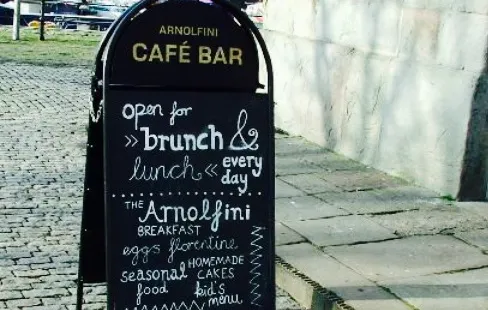 ARNOLFINI
CAFÉ BAR
open for
» brunch &
lunch « every
day
THE Arnolfini
BREAKFAST
eggs florentine
seasonal HOMEMADE
CAKES
food kid's
menu